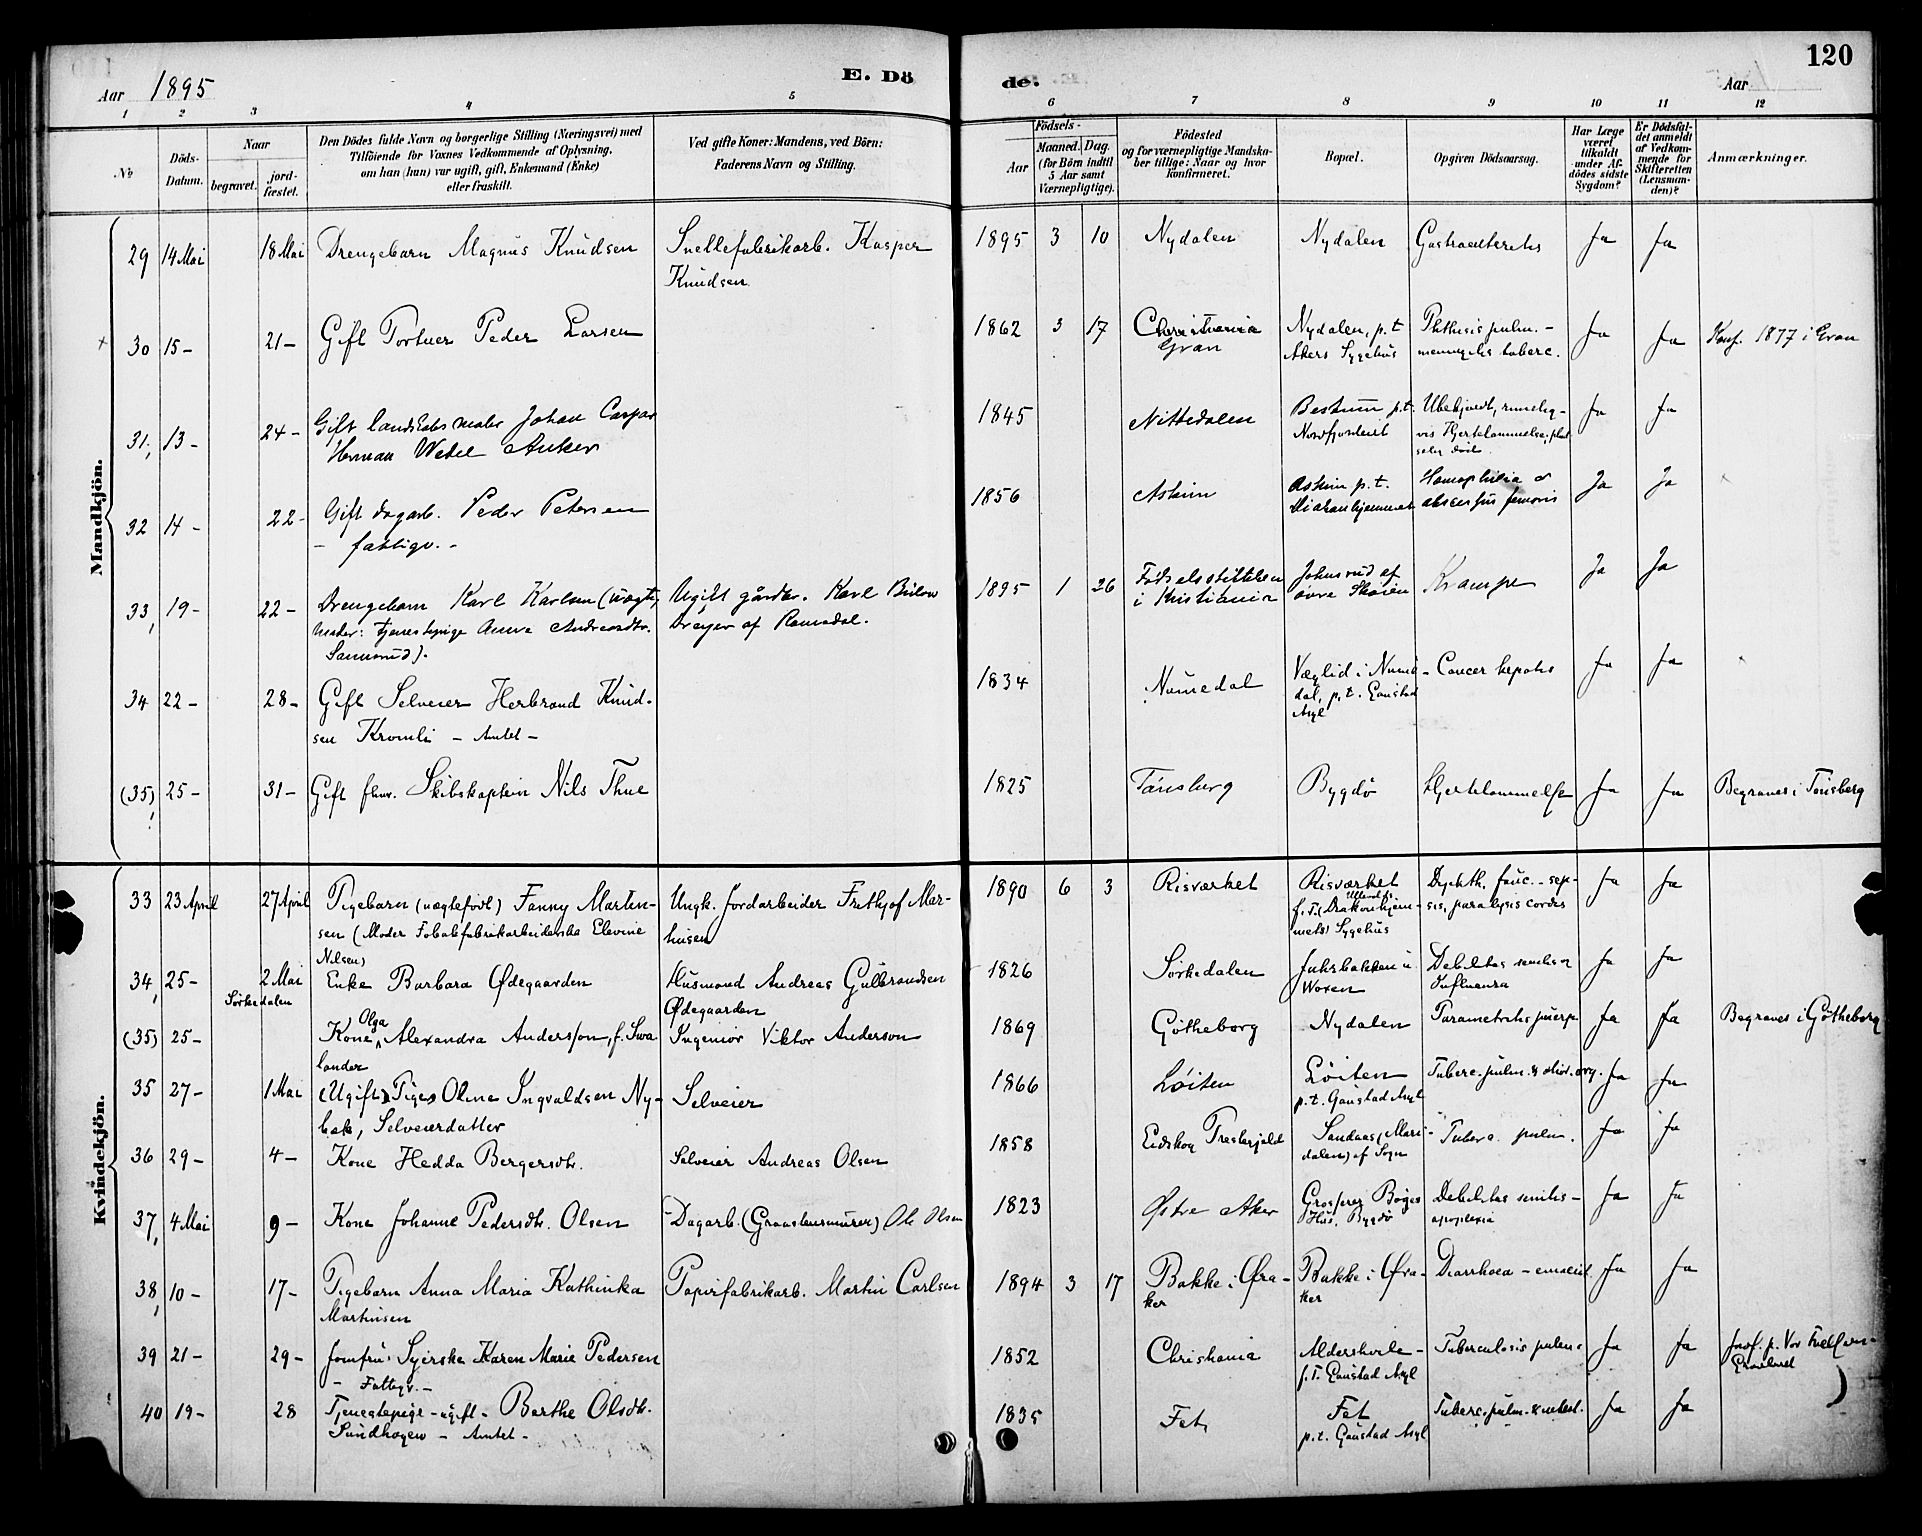 120
Aar 1895
E. Dö de.
Aar
1 2 3 4 5 6 7 8 9 10 11 12
№
Döds-Datum.
Naar
begravet.
jord-fæstet.
Den Dödes fulde Navn og borgerlige Stilling (Næringsvei) med
Tilföiende for Voxnes Vedkommende af Oplysning,
om han (hun) var ugift, gift, Enkemand (Enke)
eller fraskilt.
Ved gifte Koner: Mandens, ved Börn:
Faderens Navn og Stilling.
Födsels-
Aar
Maaned. Dag.
(for Börn indtil
5 Aar samt
Værnepligtige).
Födested
og for værnepligtige Mandska-
ber tillige: Naar og hvor
konfirmeret.
Bopæl.
Opgiven Dödsaarsag.
Har Læge
været
tilkaldt
under Af-
dödes sidste
Sygdom?
Er Dödsfal-
det anmeldt
af Vedkom-
mende for
Skifteretten
(Lensman-
den)?
Anmærkninger.
Mandkjön.
29 14 Mai 18 Mai Drengebarn Magnus Knudsen Snellefabrikarb. Kasper 1895 3 10 Nydalen Nydalen Gastroenteritis Ja Ja
Knudsen
30 15 - 21 - Gift Portner Peder Larsen 1862 3 17 Christiania Nydalen, p.t. Phthisis pulm. - Ja Ja Konf. 1877 i Gran
Gran Akers Sygehus meningitis tuberc.
31, 13 - 24 - Gift landskabsmaler Johan Caspar 1845 Nittedalen Bestum p.t. Ubekjendt, rimelig- Ja Ja
Herman Wedel Anker Nordfjordeid vis Hjertelammelse, plud
selig død
32 14 - 22 - Gift dagarb. Peder Petersen 1856 Askim Askim p.t. Hæmophilia & Ja Ja
- fattigv. - Diakonhjemmet abscessus femoris
33, 19 - 22 - Drengebarn Karl Karlsen (uægte, Ugift gårdbr. Karl Bülow 1895 1 26 Fødselsstiftelsen Johnsrud af Krampe Ja Ja
Moder: tjenestepige Anne Andreasdtr. Dreyer af Romsdal. i Kristiania øvre Skøien
Sannerud).
34 22 - 28 - Gift Selveier Herbrand Knud- 1834 Numedal Væglid i Nume- Cancer hepatis Ja Ja
sen Kromli - Amtet - dal, p.t. Gaustad
Asyl
(35) 25 - 31 - Gift fhv. Skibskaptein Nils Thue 1825 Tönsberg Bygdø Hjertelammelse Ja Ja Begraves i Tönsberg
Kvindekjön.
33 23 April 27 April Pigebarn (uægtefødt) Fanny Martin- Ungk. Jordarbeider Frithjof Mar- 1890 6 3 Risværket Risværket Diphth. fauc. - sep- Ja Ja
sen (Moder Tobaksfabrikarbeiderske Elevine thisen Ullevold p.t. (Diakonhjem- sis, paralysis cordis
Nilsen) mets) Sygehus
34, 25 - 2 Mai Enke Barbara Ødegaarden Husmand Andreas Gulbrandsen 1826 Sørkedalen Fuhrbakken u. Debilitas senilis & Ja Ja
Sørkedalen Ødegaarden Woxen Influenza
(35) 25 - Kone Olga Alexandra Andersson, f. Swa- Ingeniør Viktor Anderson 1869 Götheborg Nydalen Parametritis puerp. Ja Ja Begraves i Götheborg
lander
35 27 - 1 Mai (Ugift) Pige Oline Ingvaldsen Ny- Selveier 1866 Løiten Løiten Tuberc. pulm. & org. Ja Ja
bak, Selveierdatter p.t. Gaustad Asyl
36 29 - 4 - Kone Hedda Bergersdtr. Selveier Andreas Olsen 1858 Eidskog Sandaas (Mari- Tuberc. pulm. Ja Ja
dalen) af Sogn
37, 4 Mai 9 - Kone Johanne Pedersdtr. Olsen Dagarb. (Graastensmurer) Ole Olsen 1823 Østre Aker Grosserer Bøges Debilitas senilis - Ja Ja
Hus, Bygdø apoplexia
38, 10 - 17 - Pigebarn Anna Maria Kathinka Papirfabrikarb. Martin Carlsen 1894 3 17 Bakke i Øra- Bakke i Øra- Diarrhoea - Ja Ja
Martinsen ker ker
39 21 - 29 - Jomfru Syerske Karen Marie Pedersen 1852 Christiania Aldershvile - Tuberculosis pulm. Ja Ja
- Fattigv. - p.t. Gaustad Asyl
40 19 - 28 Tjenestepige - ugift - Berthe Olsdtr. 1835 Fet Fet Tuberc. pulm. & Ja Ja
Sundhagen - Amtet - p.t. Gaustad Asyl